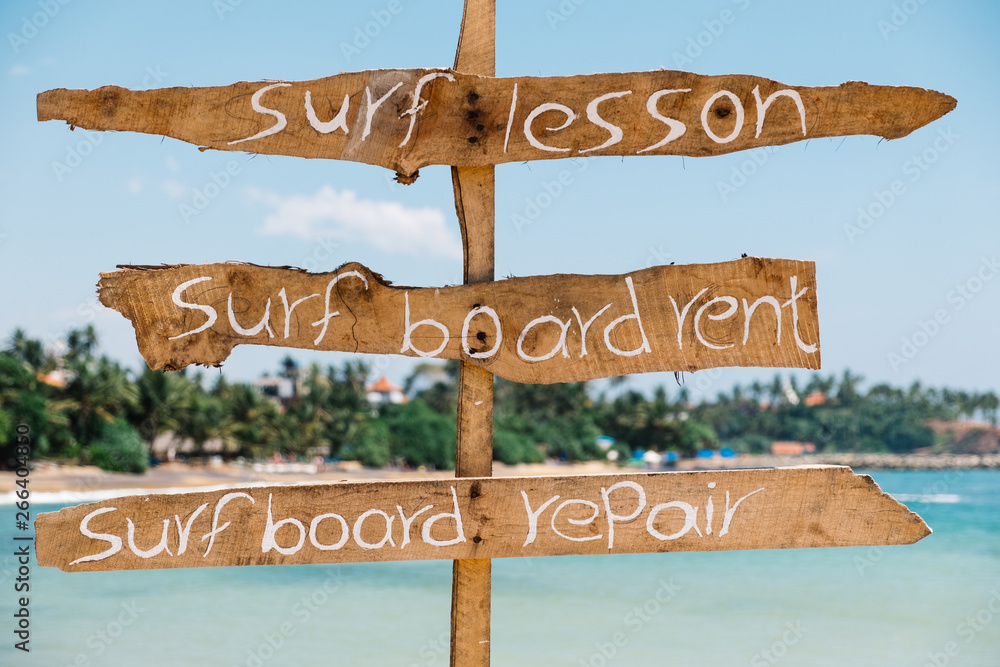 surf lesson
surf board rent
surf board repair
Adobe Stock | #266404850